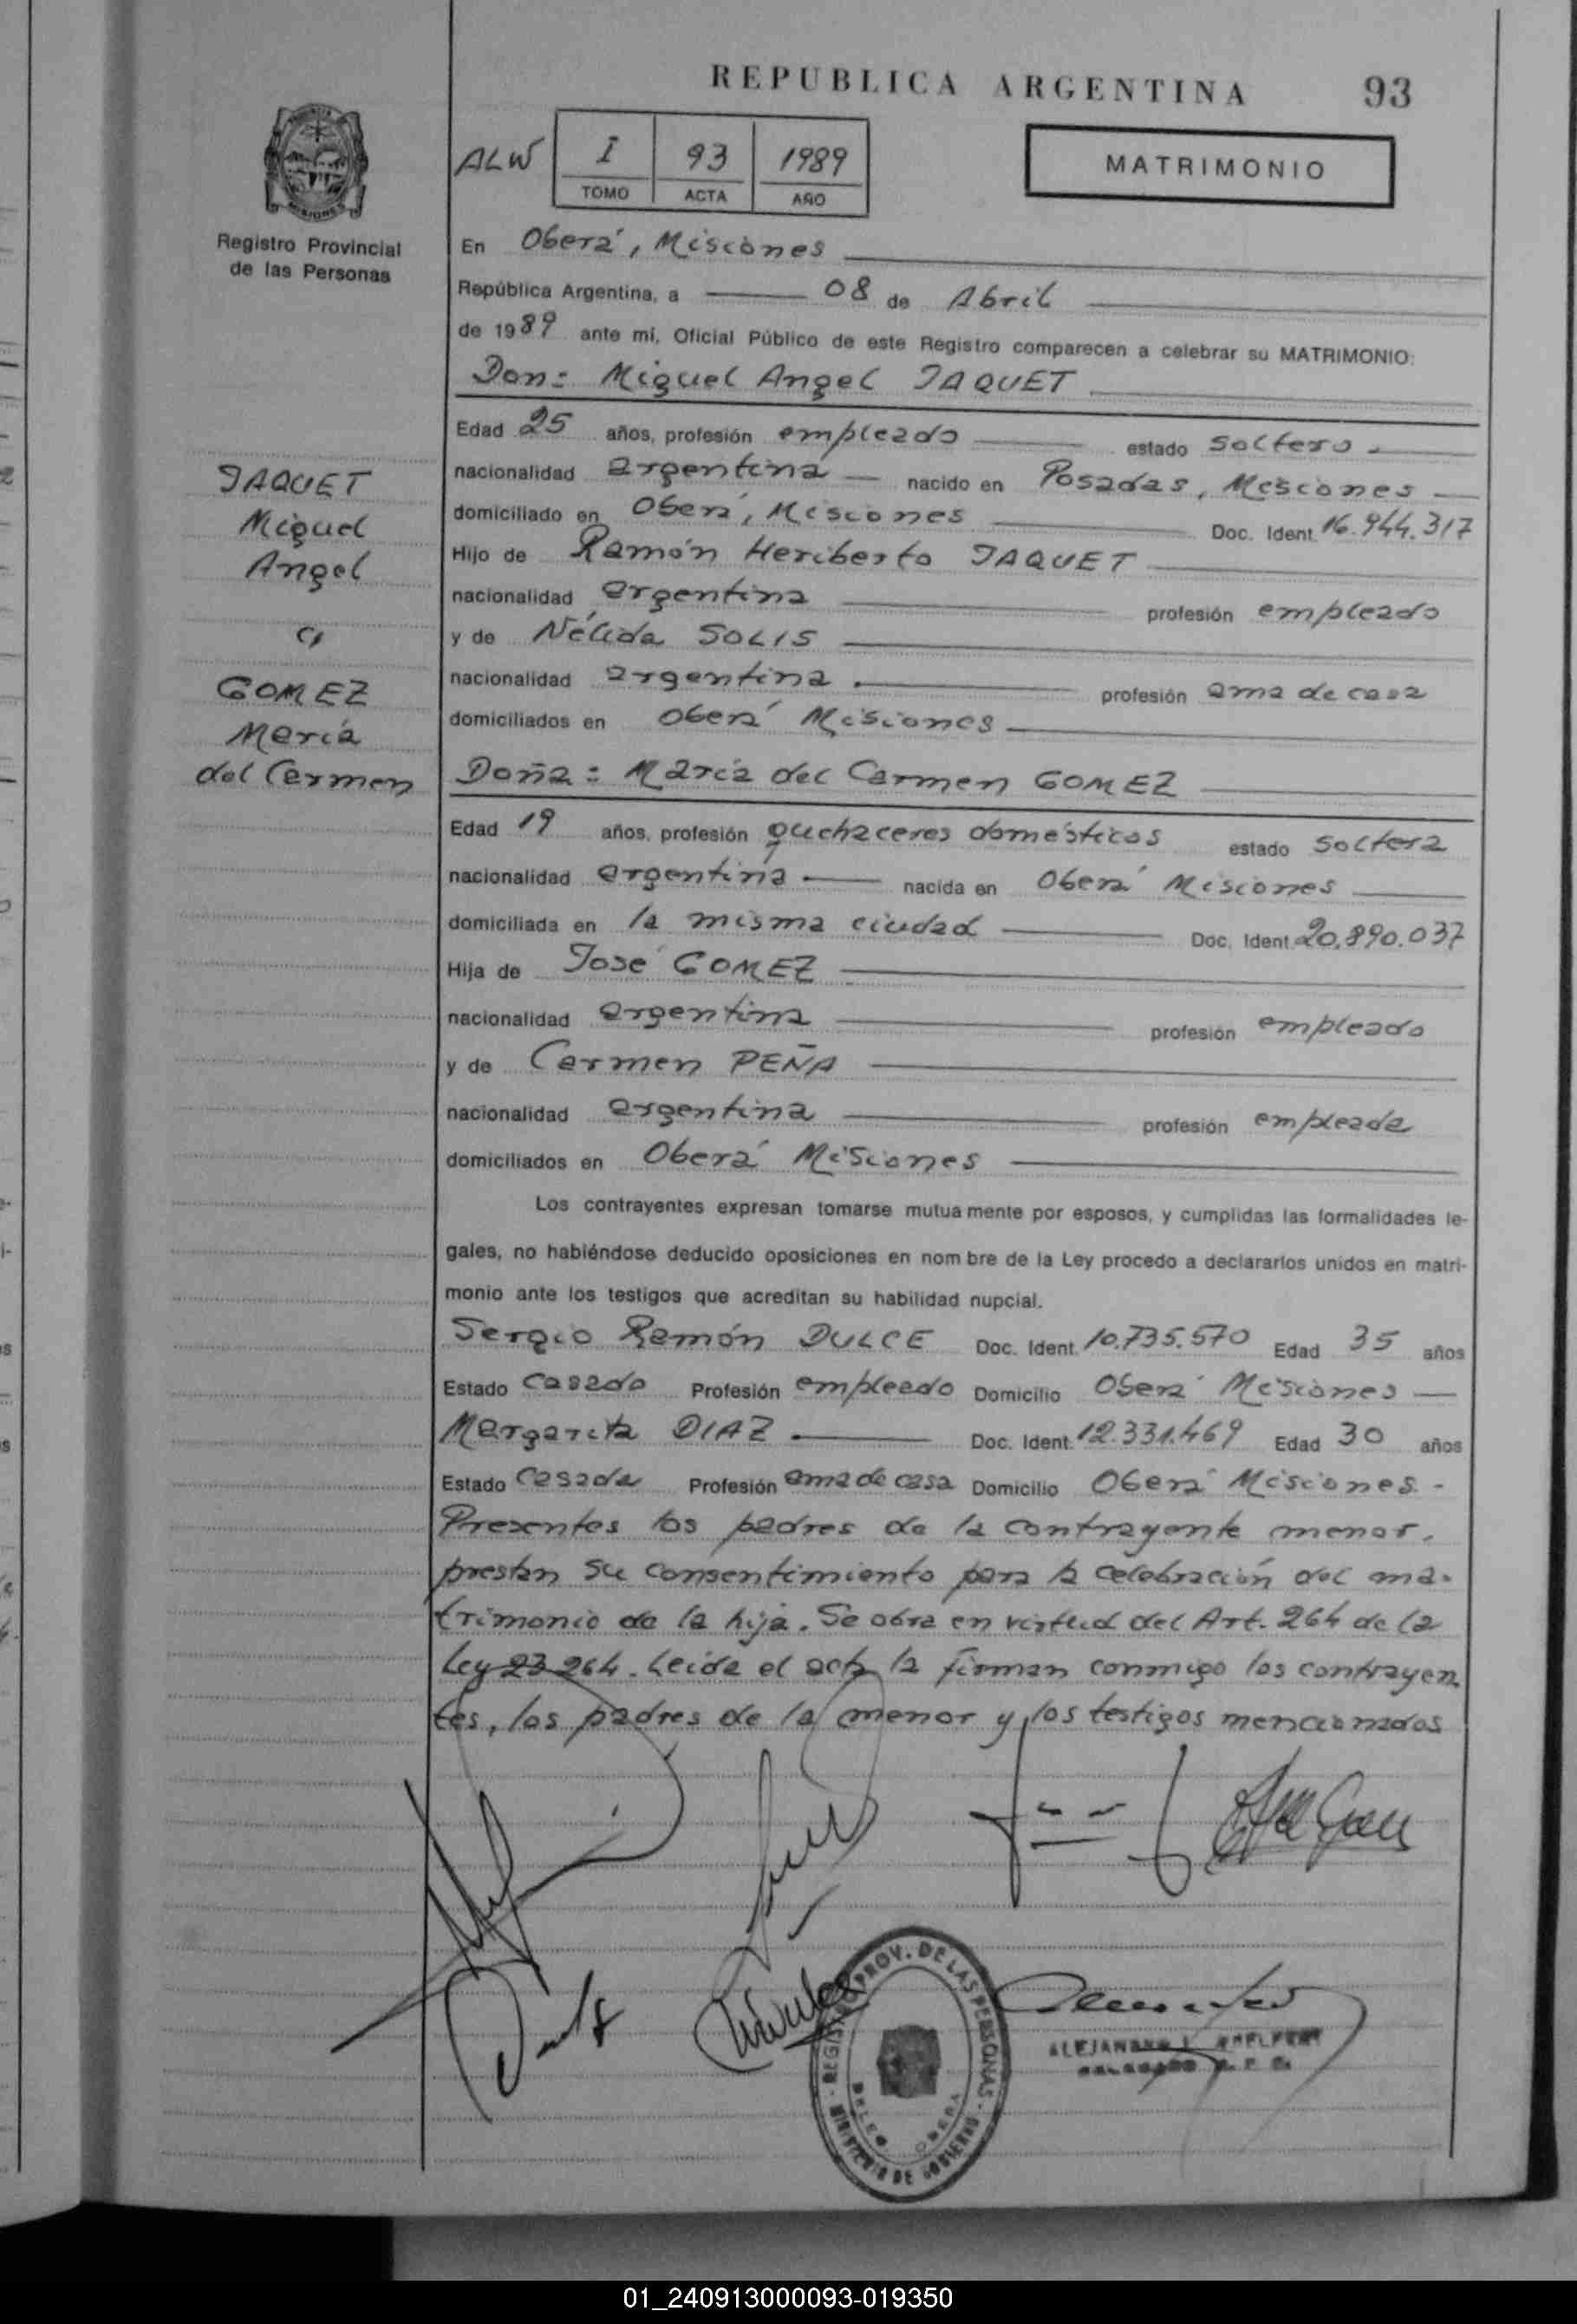 REPUBLICA ARGENTINA 93
ALW I 93 1989
TOMO ACTA AÑO
MATRIMONIO
MISIONES
Registro Provincial
de las Personas
En Oberá, Misiones
República Argentina, a 08 de Abril
de 1989 ante mi, Oficial Público de este Registro comparecen a celebrar su MATRIMONIO:
Don: Miguel Angel JAQUET
Edad 25 años, profesión empleado estado soltero
nacionalidad argentina nacido en Posadas, Misiones
domiciliado en Oberá, Misiones Doc. Ident. 16.944.317
Hijo de Ramón Heriberto JAQUET
nacionalidad argentina profesión empleado
y de Nélida SOLIS
nacionalidad argentina profesión ama de casa
domiciliados en Oberá Misiones
JAQUET
Miguel
Angel
c/
GOMEZ
María
del Carmen
Doña: María del Carmen GOMEZ
Edad 19 años, profesión quehaceres domésticos estado soltera
nacionalidad argentina nacida en Oberá Misiones
domiciliada en la misma ciudad Doc. Ident. 20.890.037
Hija de José GOMEZ
nacionalidad argentina profesión empleado
y de Carmen PEÑA
nacionalidad argentina profesión empleada
domiciliados en Oberá Misiones
Los contrayentes expresan tomarse mutuamente por esposos, y cumplidas las formalidades le-
gales, no habiéndose deducido oposiciones en nombre de la Ley procedo a declararlos unidos en matri-
monio ante los testigos que acreditan su habilidad nupcial.
Sergio Ramón DULCE Doc. Ident. 10.735.570 Edad 35 años
Estado casado Profesión empleado Domicilio Oberá Misiones
Margarita DIAZ Doc. Ident. 12.331.469 Edad 30 años
Estado casada Profesión ama de casa Domicilio Oberá Misiones.-
Presentes los padres de la contrayente menor,
prestan su consentimiento para la celebración del ma-
trimonio de la hija. Se obra en virtud del Art. 264 de la
Ley 23264. Leída el acta la firman conmigo los contrayen
tes, los padres de la menor y los testigos mencionados
REGISTRO PROV. DE LAS PERSONAS
MINISTERIO DE GOBIERNO
OBERA
01_240913000093-019350